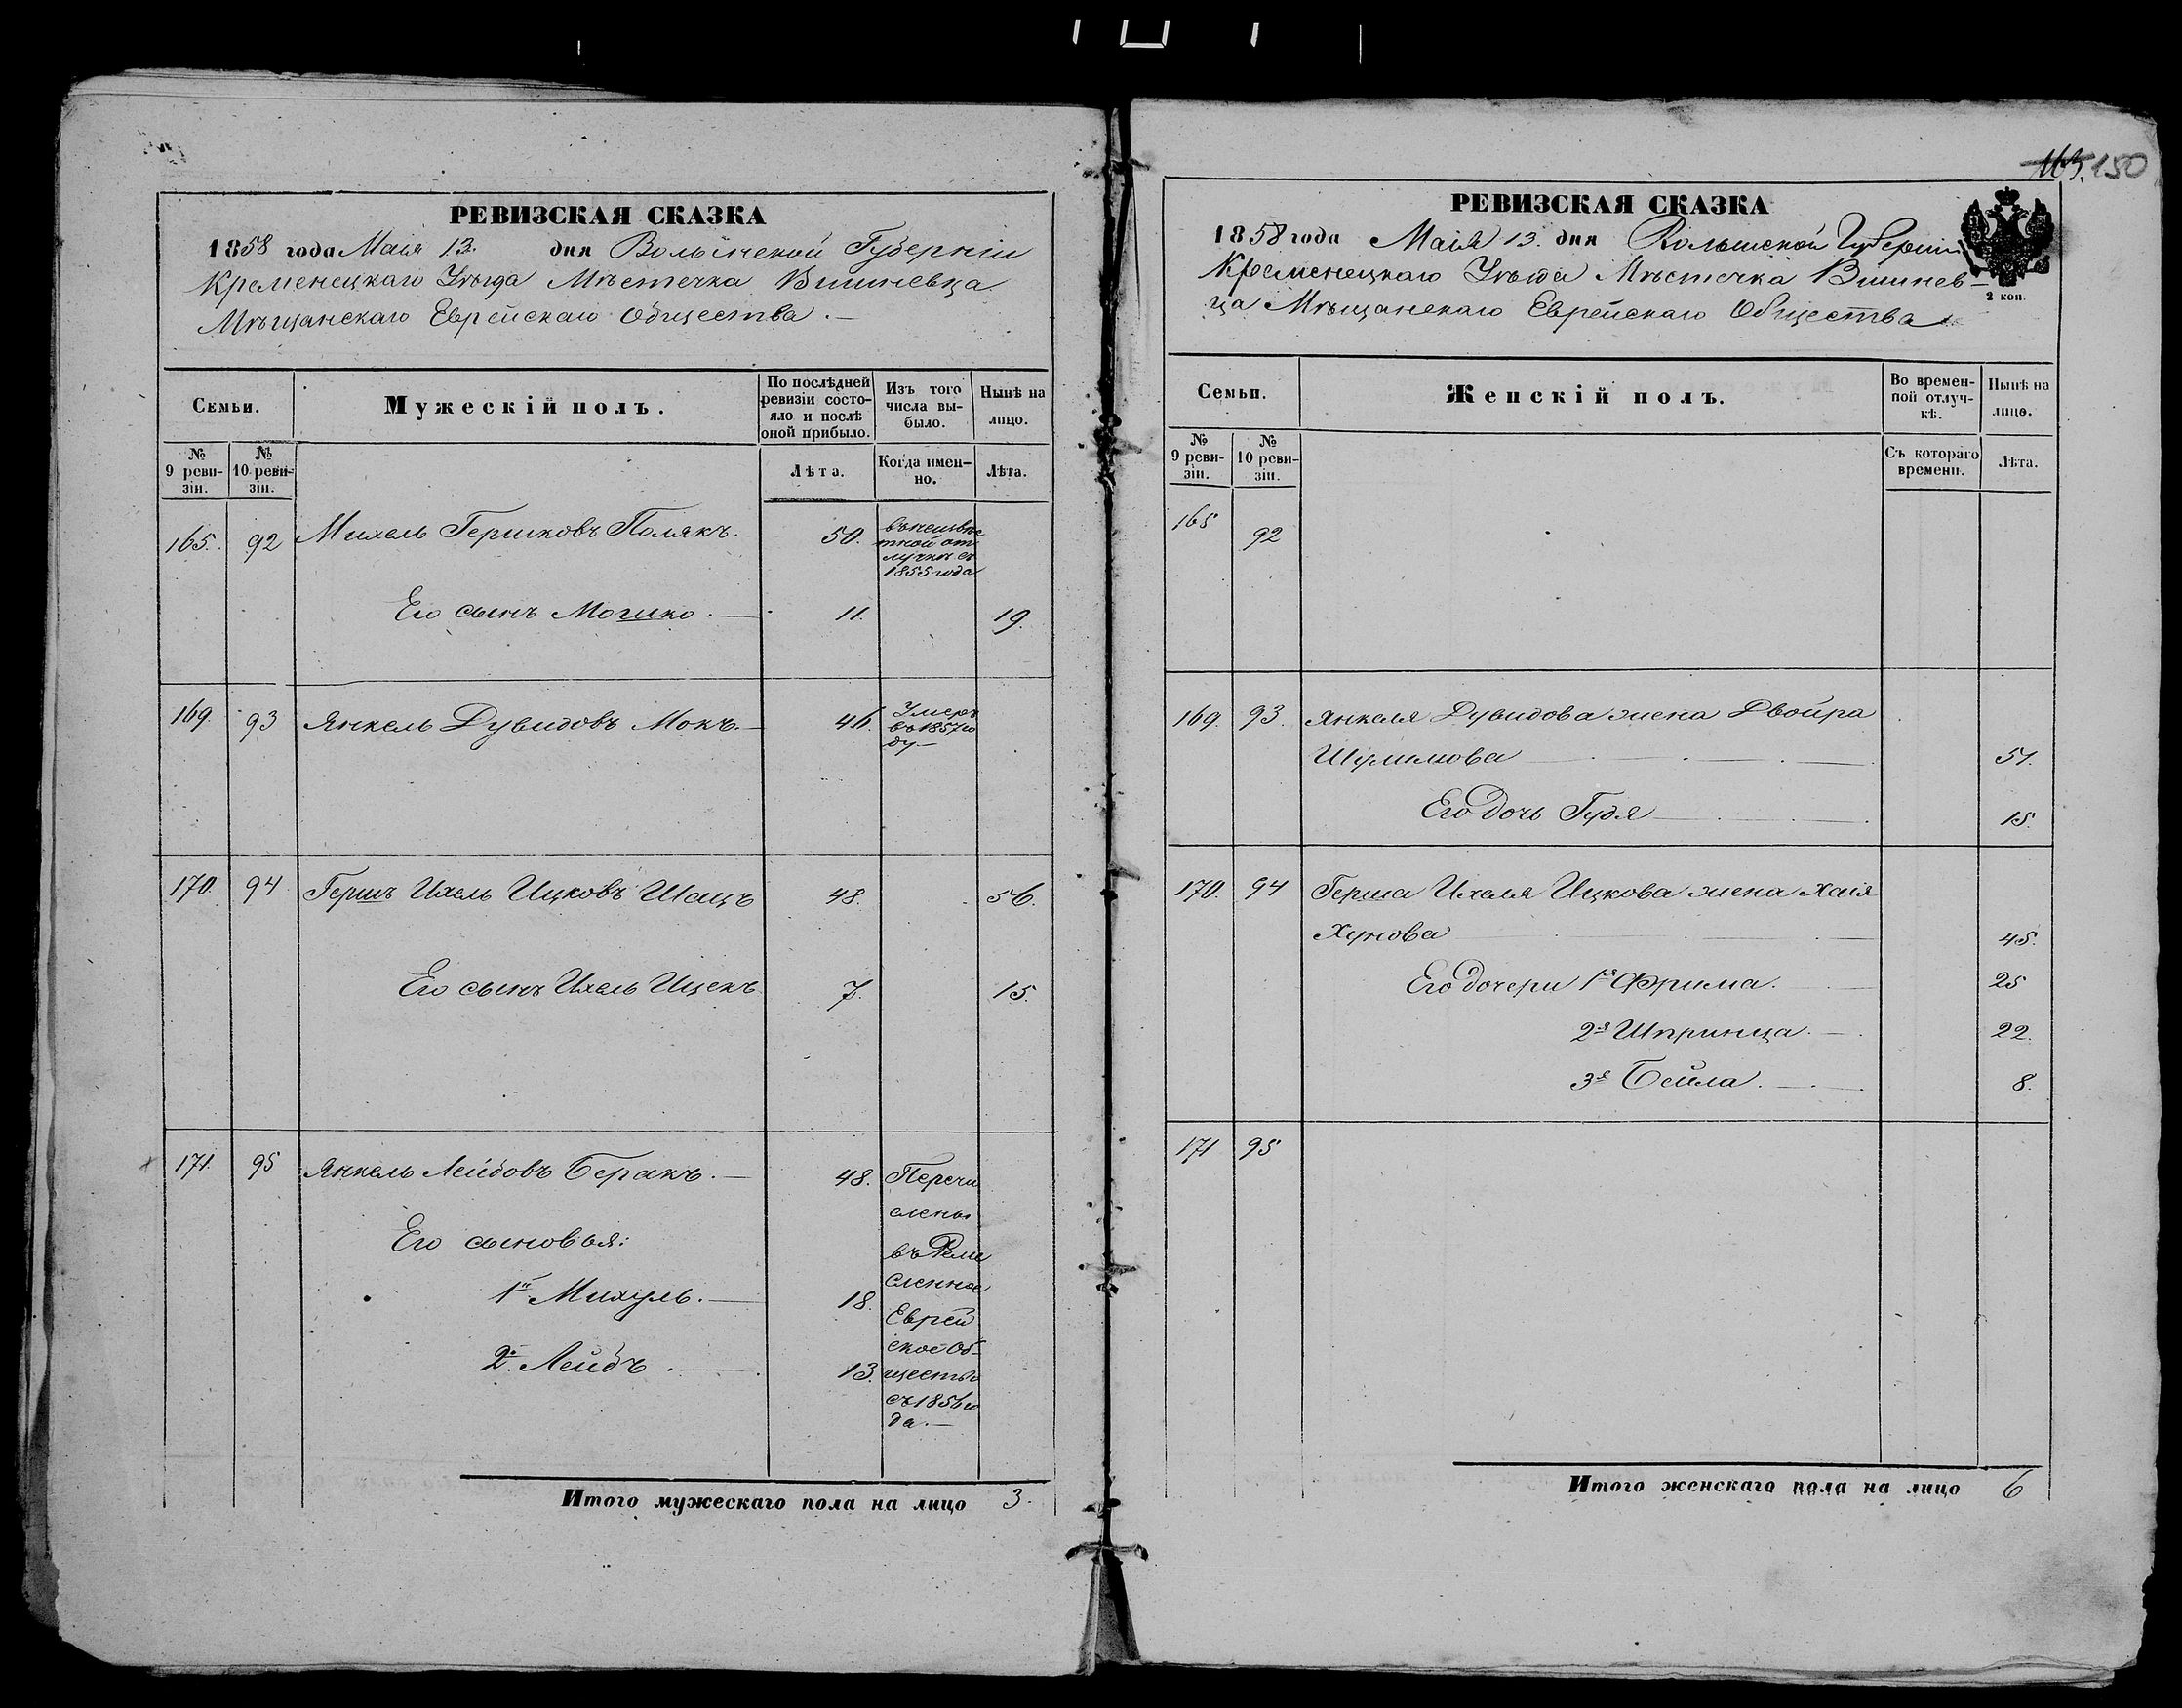 РЕВИЗСКАЯ СКАЗКА
1858 года Маія 13. дня Волынской Губерніи
Кременецкаго Уѣзда Мѣстечка Вишневца
Мѣщанскаго Еврейскаго Общества. —
Семьи.
Мужескій полъ.
По послѣдней ревизіи состояло и послѣ оной прибыло.
Изъ того числа выбыло.
Нынѣ на лицо.
№ 9 ревизіи.
№ 10 ревизіи.
Лѣта.
Когда именно.
Лѣта.
165. 92 Михель Гершковъ Полякъ. 50. въ неизвѣс
тной от
лучкѣ съ
1855 года
Его сынъ Мошко. — 11. 19.
169. 93 Янкель Дувидовъ Мокъ. — 46. Умеръ
въ 1857 го
ду —
170. 94 Гершъ Ихель Ицковъ Шацъ 48. 56.
Его сынъ Ихель Ицекъ 7. 15.
171. 95 Янкель Лейбовъ Беракъ. — 48. Перечи
слены
Его сыновья: въ Реме
сленное
1й Михуль. — 18. Еврей
ское Об-
2й. Лейбъ. — 13. щество
съ 1856 го
да. —
Итого мужескаго пола на лицо 3.
163. 150
РЕВИЗСКАЯ СКАЗКА
1858 года Маія 13. дня Волынской Губерніи
Кременецкаго Уѣзда Мѣстечка Вишнев-
ца Мѣщанскаго Еврейскаго Общества
2 коп.
Семьи.
Женскій полъ.
Во временной отлучкѣ.
Нынѣ на лицо.
№ 9 ревизіи.
№ 10 ревизіи.
Съ котораго времени.
Лѣта.
165 92
169. 93. Янкеля Дувидова жена Двойра
Шулимова 51.
Его дочь Гудя 15.
170. 94 Герша Ихеля Ицкова жена Хаія
Хунова 45.
Его дочери 1я Фрима. 25
2я Шпринца. — 22.
3я Бейла. — 8.
171 95
Итого женскаго пола на лицо 6